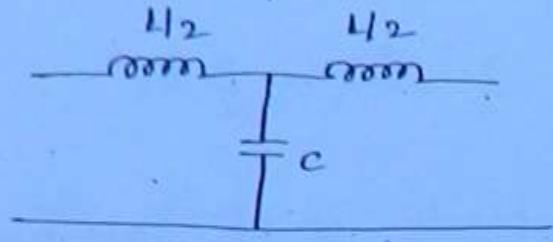 L/2 L/2
C